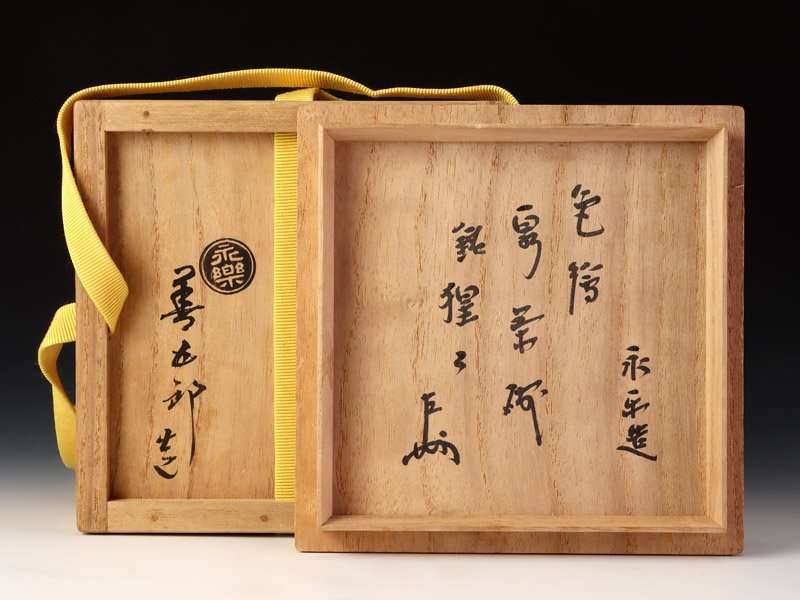 永楽造
色繪
茶碗
銘 猩々
永樂
善五郎 造